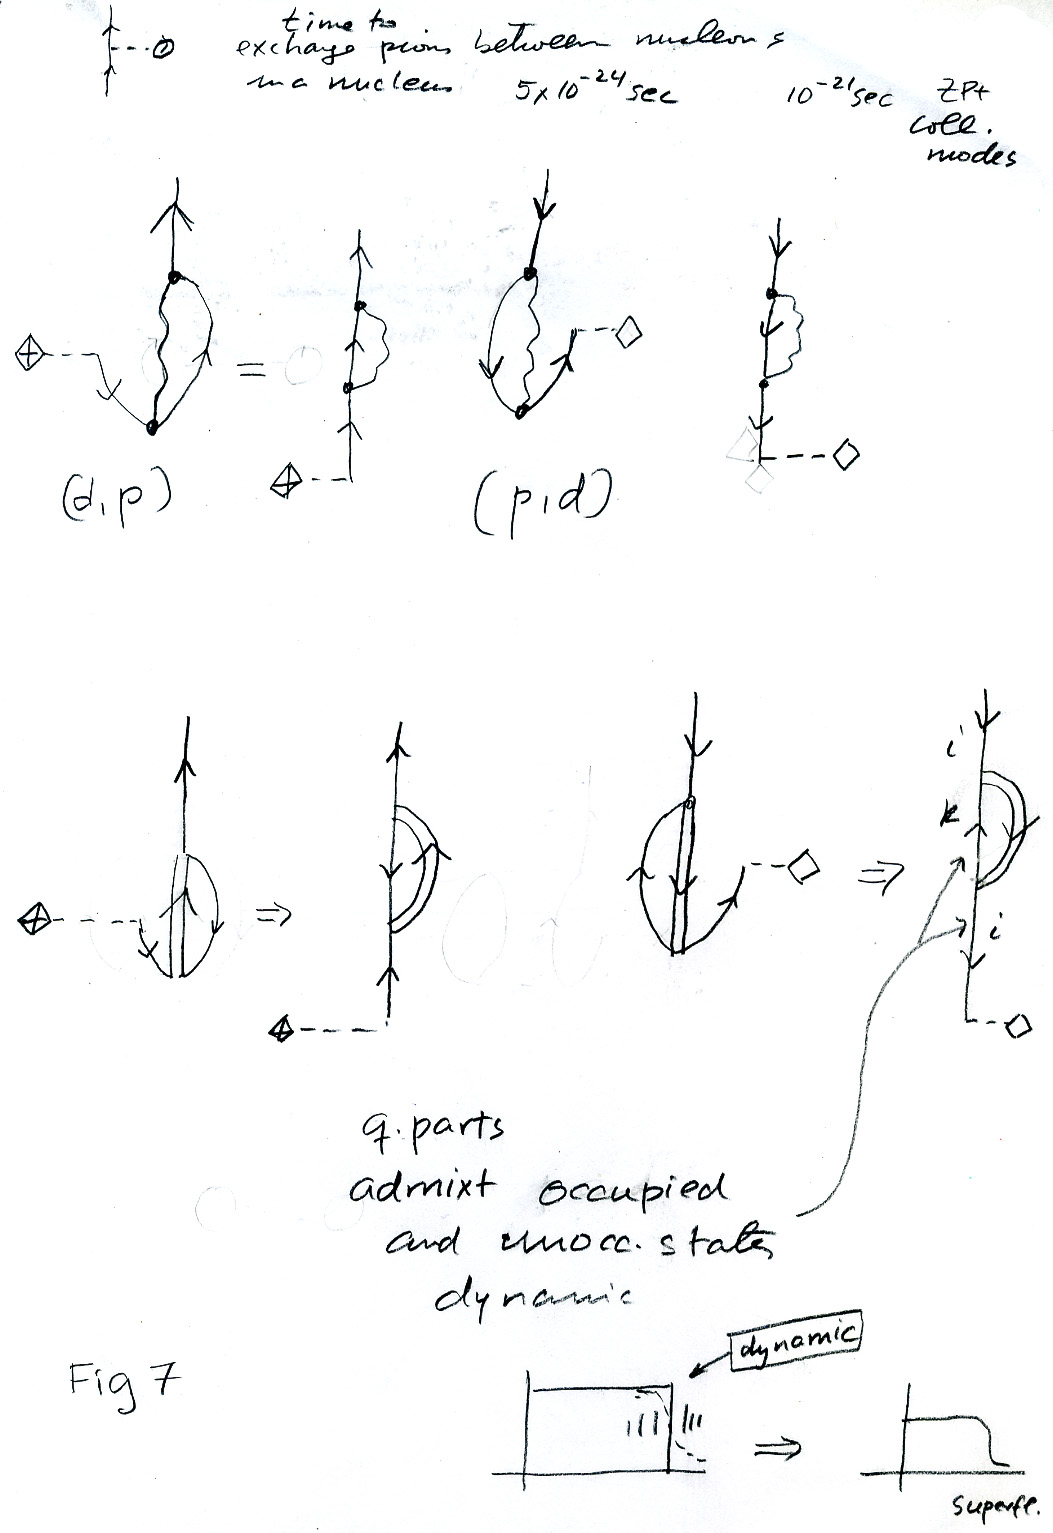 time to
exchage pions between nucleons
in a nucleus 5x10⁻²⁴ sec 10⁻²¹ sec ZPF
coll.
modes
=
(d,p) (p,d)
i'
k
⇒ ⇒
i
q.parts
admixt occupied
and unocc. states
dynamic
dynamic
Fig 7
⇒
Superfl.